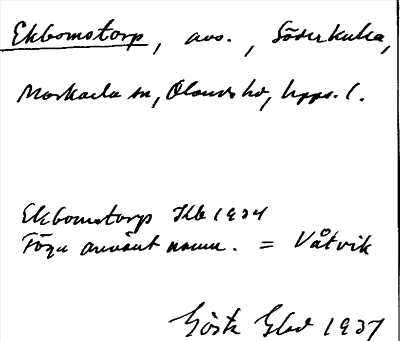 Ekbomstorp, avs., Söderkulla,
Markarla sn, Olands hd, Upps. l.
Ekbomstorp Jkb 1934
Föga använt namn. = Våtvik
Gösta Glad 1937